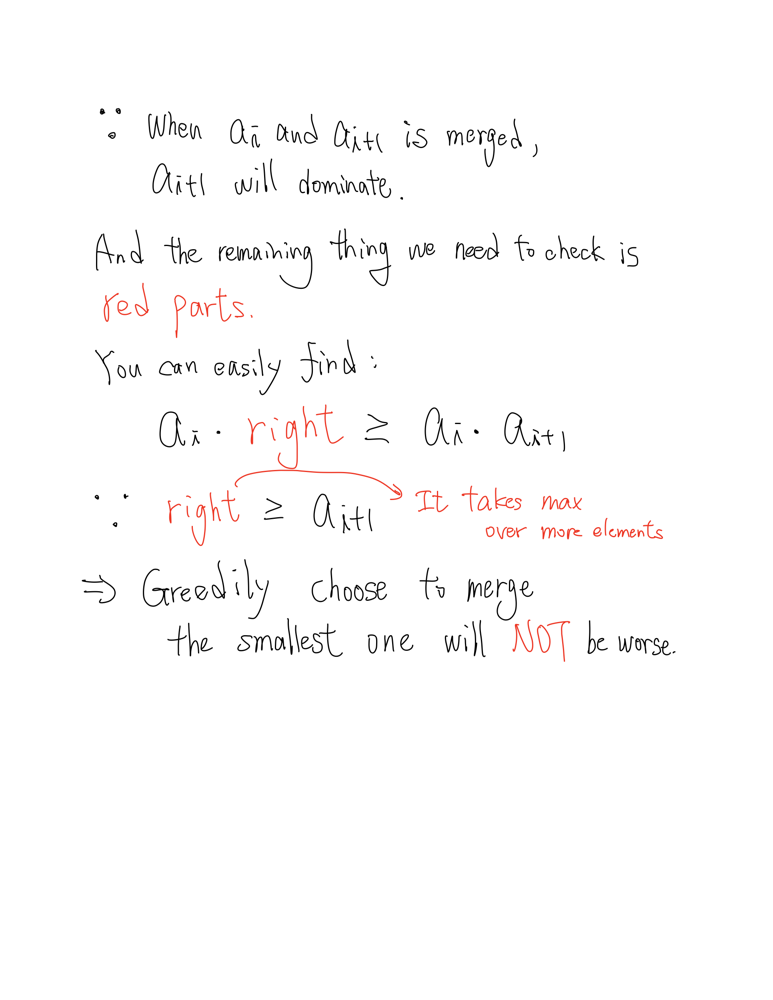 ∵ When aᵢ and aᵢ₊₁ is merged,
aᵢ₊₁ will dominate.
And the remaining thing we need to check is
red parts.
You can easily find :
aᵢ · right ≥ aᵢ · aᵢ₊₁
∵ right ≥ aᵢ₊₁ → It takes max
over more elements
⇒ Greedily choose to merge
the smallest one will NOT be worse.